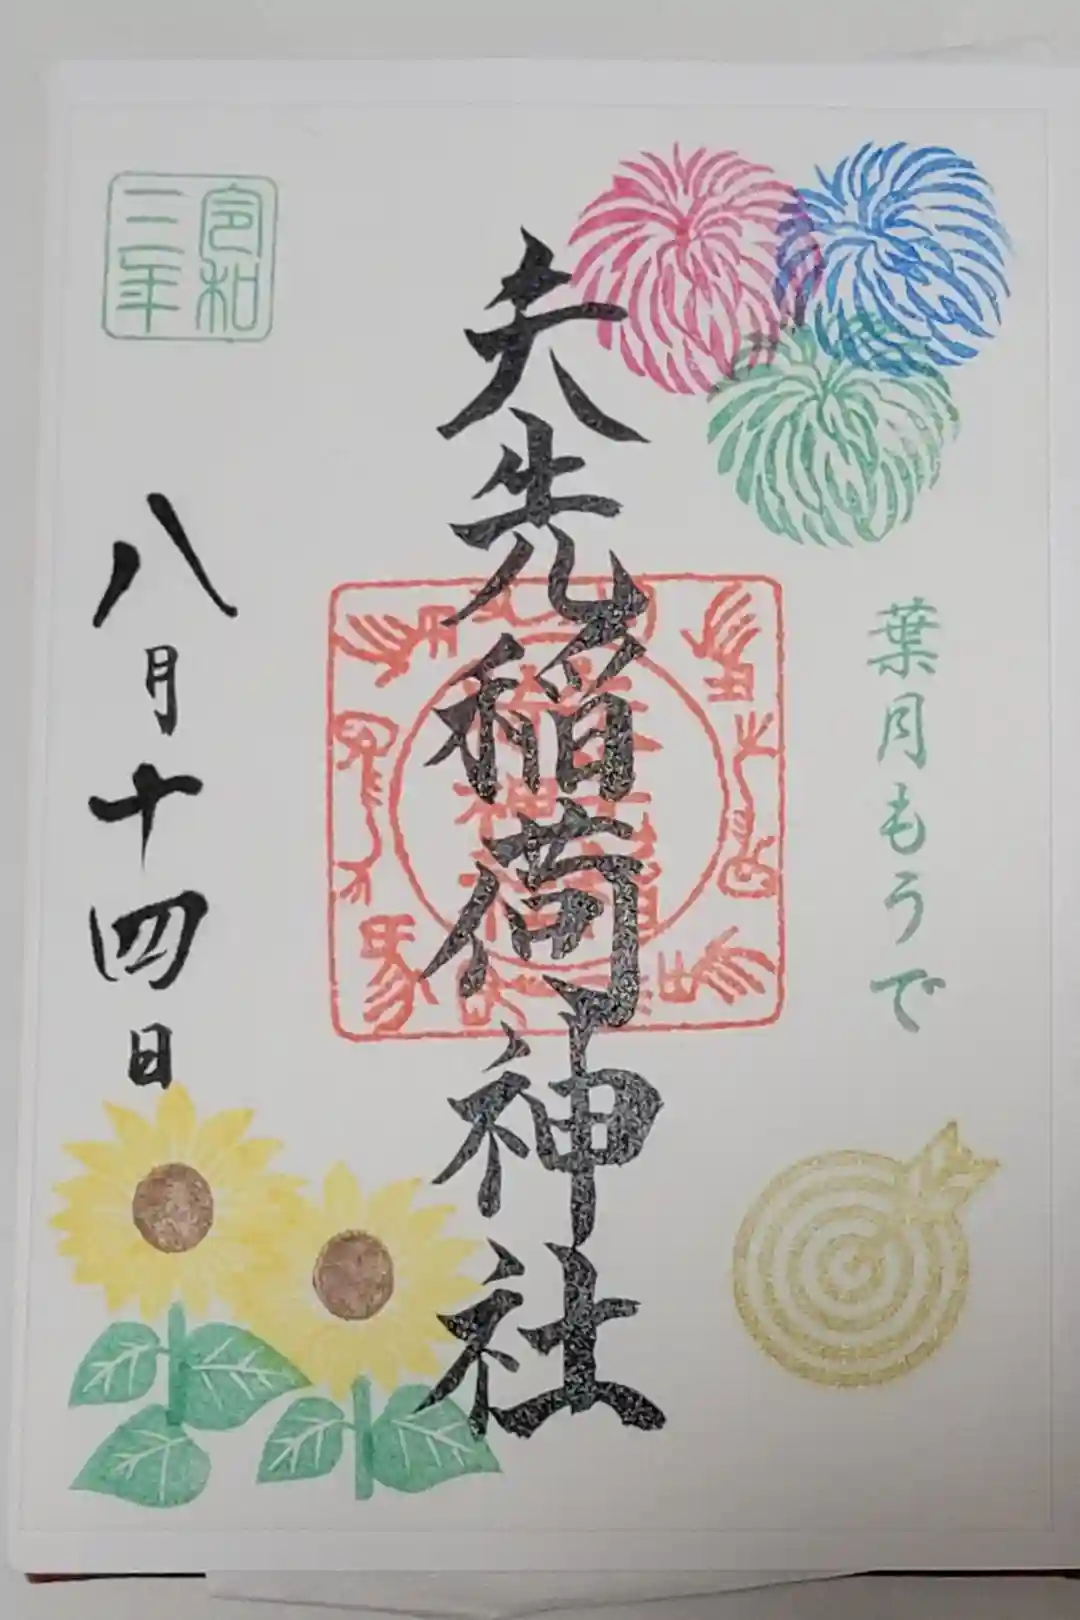 葉月もうで
矢先稲荷神社
令和
二年
八月十四日